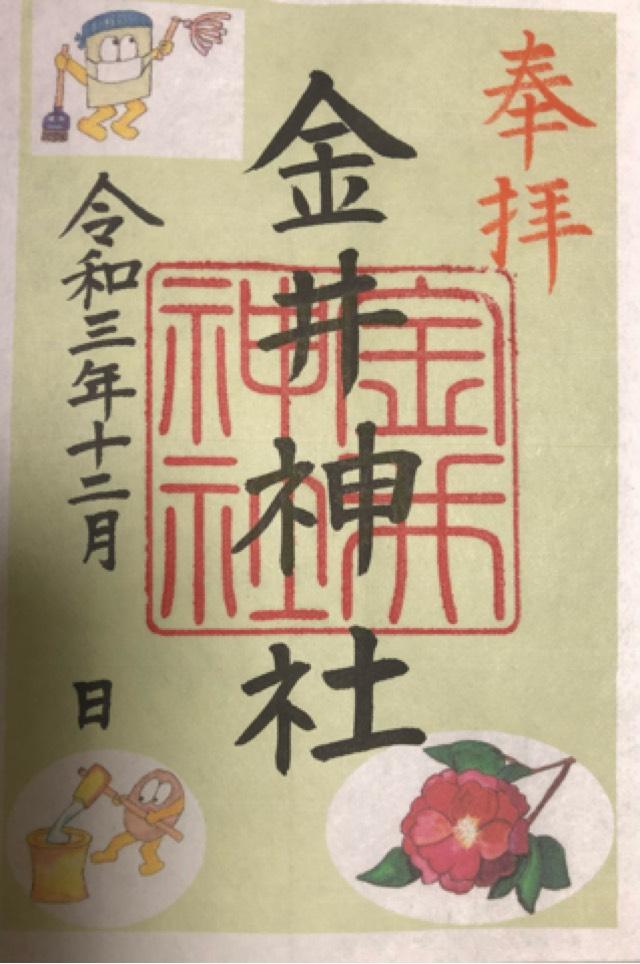 奉拝
金井神社
金井神社
令和三年十二月　日